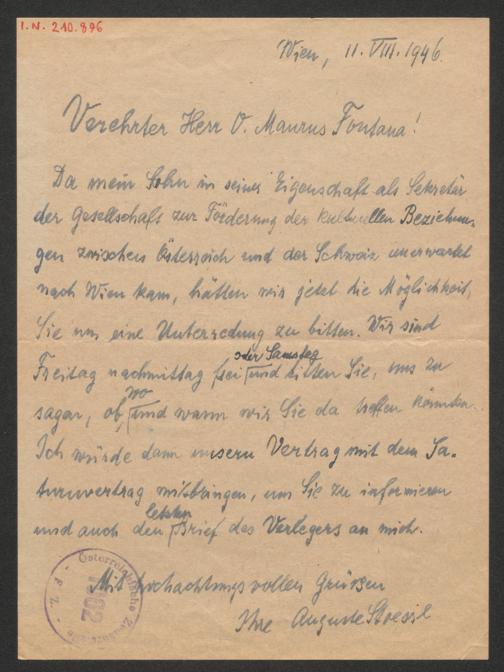 I.N. 210.896
Wien, 11. VIII. 1946.
Verehrter Herr O. Maurus Fontana!
Da mein Sohn in seiner Eigenschaft als Sekretär
der Gesellschaft zur Förderung der kulturellen Beziehun-
gen zwischen Österreich und der Schweiz unerwartet
nach Wien kam, hätten wir jetzt die Möglichkeit,
Sie um eine Unterredung zu bitten. Wir sind
oder Samstag
Freitag nachmittag frei und bitten Sie, uns zu
wo
sagen, ob, und wann wir Sie da treffen könnten.
Ich würde dann unsern Vertrag mit dem Sa-
turnvertrag mitbringen, um Sie zu informieren
letzten
und auch den Brief des Verlegers an mich.
Mit hochachtungsvollen Grüssen
Ihre Auguste Stoessl
Österreichische Zensurstelle